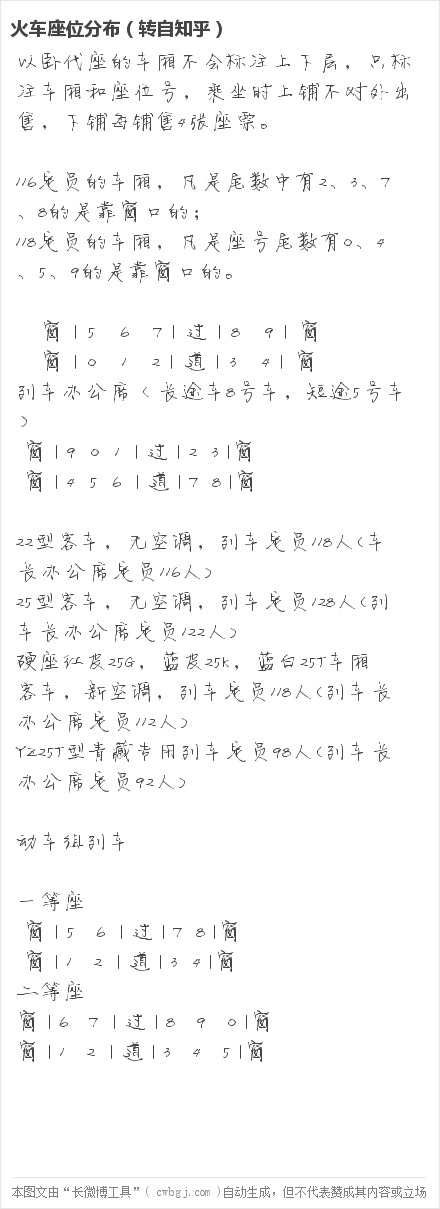 火车座位分布（转自知乎）
以卧代座的车厢不会标注上下层，只标
注车厢和座位号，乘坐时上铺不对外出
售，下铺每铺售4张座票。
116定员的车厢，凡是尾数中有2、3、7
、8的是靠窗口的；
118定员的车厢，凡是座号尾数有0、4
、5、9的是靠窗口的。
窗 | 5 6 7 | 过 | 8 9 | 窗
窗 | 0 1 2 | 道 | 3 4 | 窗
列车办公席（长途车8号车，短途5号车
）
窗 | 9 0 1 | 过 | 2 3 | 窗
窗 | 4 5 6 | 道 | 7 8 | 窗
22型客车，无空调，列车定员118人（车
长办公席定员116人）
25型客车，无空调，列车定员128人（列
车长办公席定员122人）
硬座红皮25G，蓝皮25K，蓝白25T车厢
客车，新空调，列车定员118人（列车长
办公席定员112人）
YZ25T型青藏专用列车定员98人（列车长
办公席定员92人）
动车组列车
一等座
窗 | 5 6 | 过 | 7 8 | 窗
窗 | 1 2 | 道 | 3 4 | 窗
二等座
窗 | 6 7 | 过 | 8 9 0 | 窗
窗 | 1 2 | 道 | 3 4 5 | 窗
本图文由“长微博工具”( cwbgj.com )自动生成，但不代表赞成其内容或立场